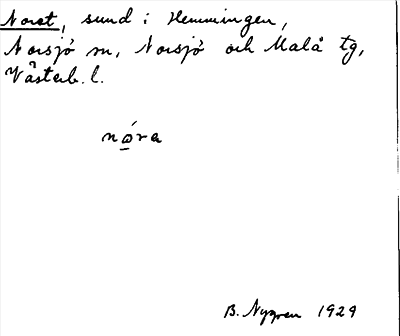 Noret, sund i Hemmingen,
Norsjö sn, Norsjö och Malå tg,
Västerb. l.
nó̲ra
B. Nygren 1929